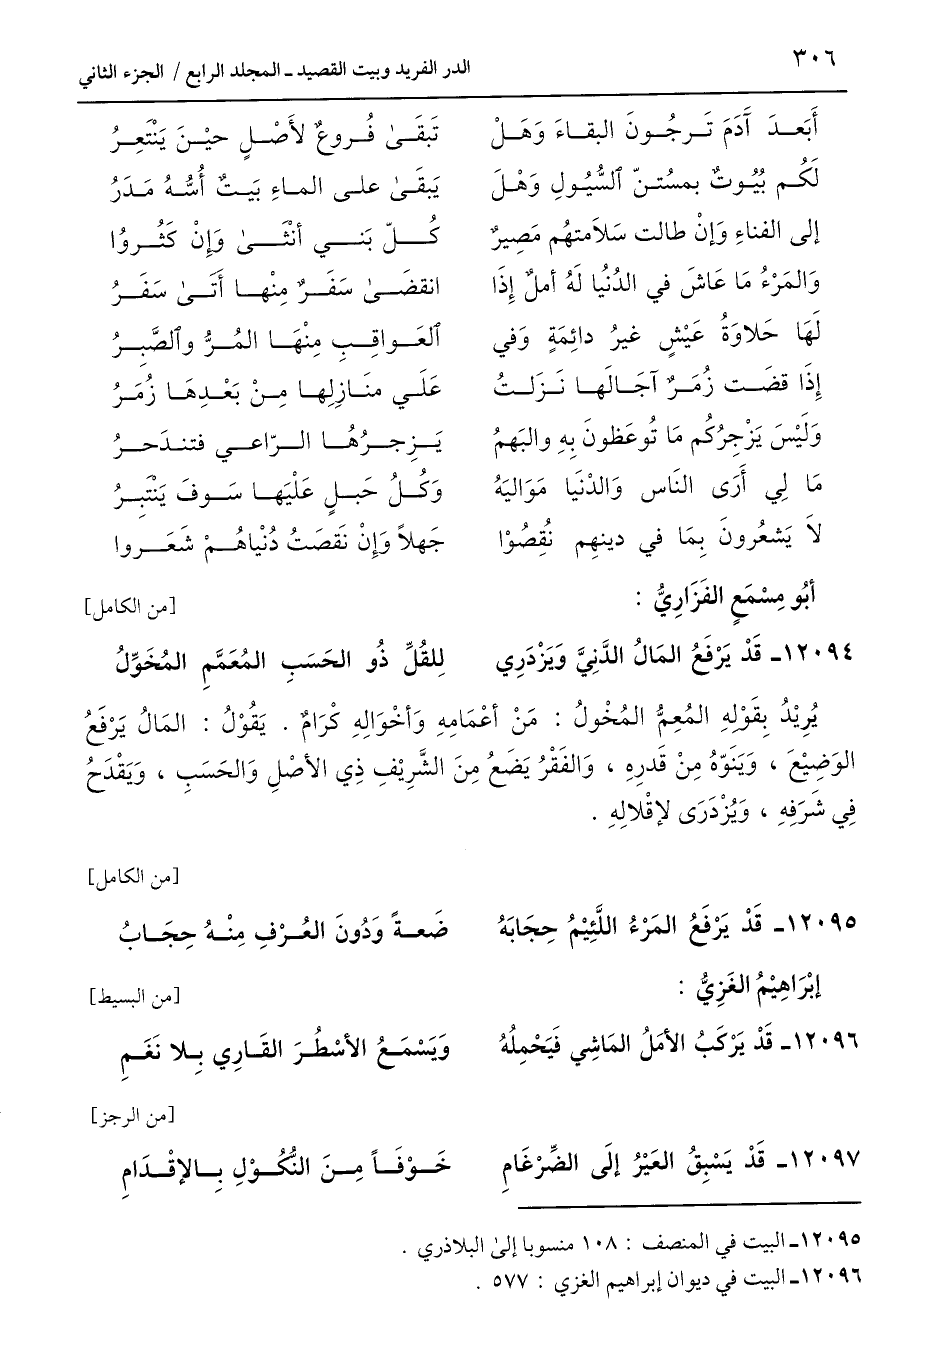 ٣٠٦ الدر الفريد وبيت القصيد ـ المجلد الرابع / الجزء الثاني
أَبَعدَ آدَمَ تَرجُونَ البقاءَ وَهَلْ تَبقَىٰ فُروعٌ لأَصْلٍ حِيْنَ يَنْقَعِرُ
لَكُم بُيُوتٌ بِمستَنّ ٱلسُّيُولِ وَهْلَ يَبقَىٰ على الماءِ بَيتٌ أُسُّهُ مَدَرُ
إلى الفناءِ وَإنْ طالت سَلاَمتهُم مَصِيرٌ كُلّ بَني أنثَىٰ وَإِنْ كَثُروُا
وَالمَرْءُ مَا عَاشَ في الدُنُيا لَهُ أملٌ إِذَا انقضَىٰ سَفَرٌ مِنْهَا أَتَىٰ سَفَرُ
لَهَا حَلاوَةُ عَيْشٍ غيرُ دائِمَةٍ وَفي ٱلعَواقِبِ مِنْهَا المُرُّ وٱلصَّبِرُ
إِذَا قضَت زُمَرٌ آجَالَها نَزلَتُ عَلَي مَنَازِلِها مِنْ بَعْدِهَا زُمَرُ
وَليْسَ يَزْجرُكُم مَا تُوعَظونَ بِهِ والبَهمُ يَزجرُهَا الرّاعي فتندَحرُ
مَا لِي أَرَى النَاسِ وَالدُنْيا مَوَاليَةٌ وَكُلُّ حَبلٍ عَلَيْهَا سَوفَ يَنْتَبِرُ
لاَ يَشعُرونَ بِمَا في دينهم نُقِصُوْا جَهلاً وَإِنْ نَقصَتْ دُنْياهُمْ شَعَروا
أبُو مِسْمَعٍ الفَزَارِيُّ : [من الكامل]
١٢٠٩٤ـ قَدْ يَرْفَعُ المَالُ الدَّنِيَّ وَيَزْدَرِي لِلقُلِّ ذُو الحَسَبِ المُعَمَّمِ المُخَوِّلُ
يُرِيْدُ بِقَوْلِهِ المُعِمُّ المُخْوِلُ : مَنْ أَعْمَامِهِ وَأخْوَالِهِ كْرَامٌ . يَقُوْلُ : المَالُ يَرْفَعُ
الوَضِيْعَ ، وَيَنَوّهُ مِنْ قَدرِهِ ، وَالفَقْرُ يَضَعُ مِنَ الشَّرِيْفِ ذِي الأصْلِ وَالحَسَبِ ، وَيَقْدَحُ
فِي شَرَفِهِ ، وَيُزْدَرَى لإقْلالِهِ .
[من الكامل]
١٢٠٩٥ـ قَدْ يَرْفَعُ المَرْءُ اللَّئِيْمُ حِجَابَهُ ضَعةً وَدُونَ العُرْفِ مِنْهُ حِجَابُ
إبْرَاهِيْمُ الغَزِيُّ : [من البسيط]
١٢٠٩٦ـ قَدْ يَرْكَبُ الأمَلُ المَاشِي فَيَحْمِلُهُ وَيَسْمَعُ الأَسْطُرَ القَارِي بِلا نَغَمِ
[من الرجز]
١٢٠٩٧ـ قَدْ يَسْبِقُ العَيْرُ إلَى الضِّرْغَامِ خَوْفَاً مِنَ النُّكُوْلِ بِالإقْدَامِ
١٢٠٩٥ـ البيت في المنصف : ١٠٨ منسوبا إلىٰ البلاذري .
١٢٠٩٦ـ البيت في ديوان إبراهيم الغزي : ٥٧٧ .